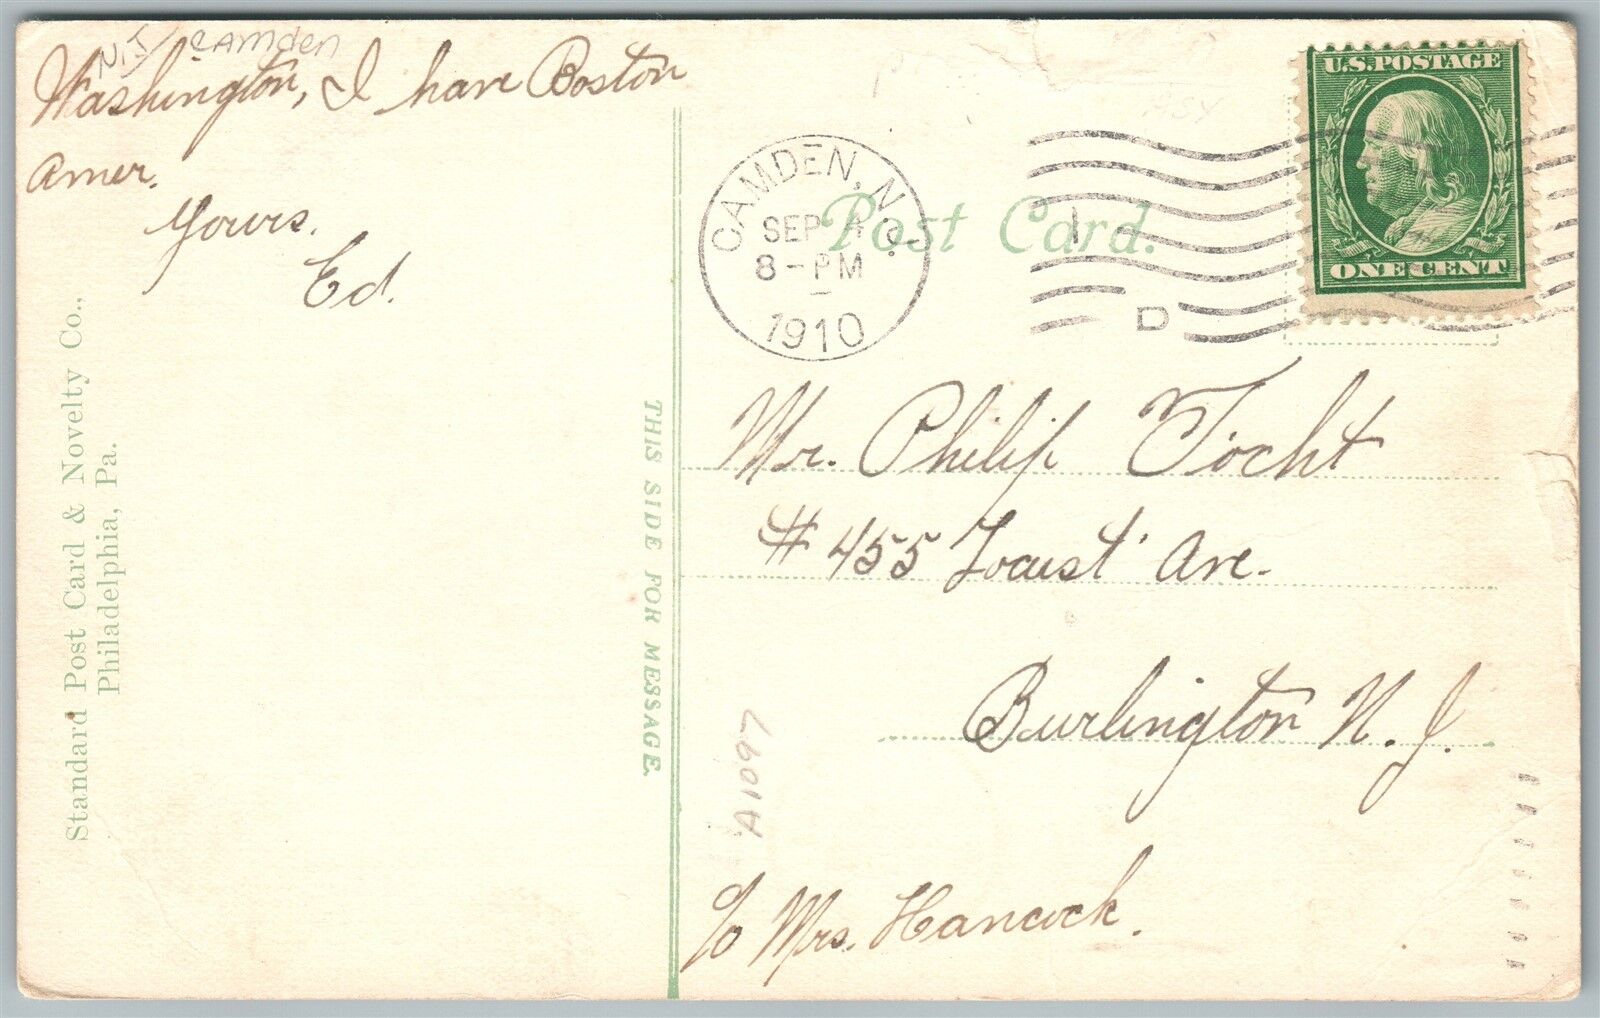 N.J. Camden
Washington, I have Boston
Amer.
Yours.
Ed.
Standard Post Card & Novelty Co.,
Philadelphia, Pa.
THIS SIDE FOR MESSAGE.
Post Card.
CAMDEN, N.J.
SEP 4
8-PM
1910
1
D
U.S. POSTAGE
ONE CENT
Mr. Philip Tocht
# 455 Locust Ave.
Burlington N. J.
c/o Mrs. Hancock.
A1097